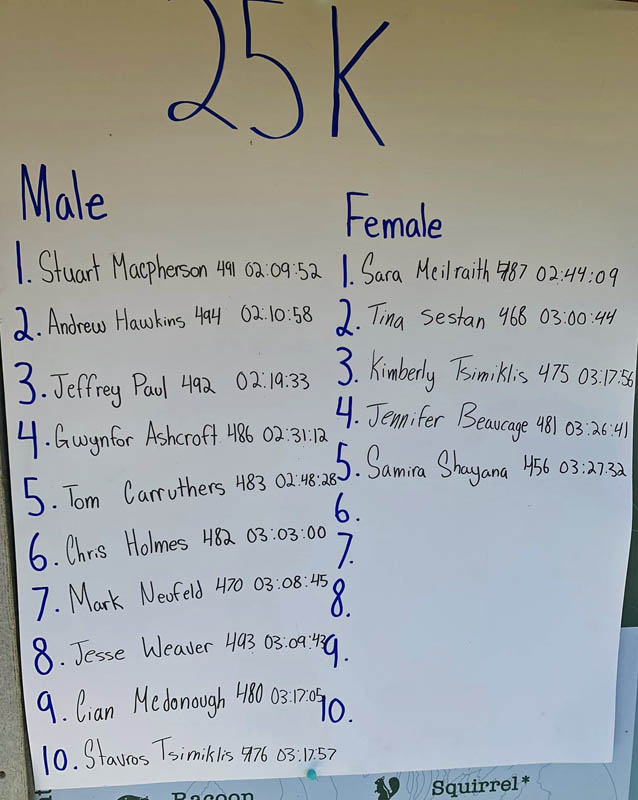 25K
Male
1. Stuart Macpherson 491 02:09:52
2. Andrew Hawkins 494 02:10:58
3. Jeffrey Paul 492 02:19:33
4. Gwynfor Ashcroft 486 02:31:12
5. Tom Carruthers 483 02:48:28
6. Chris Holmes 482 03:03:00
7. Mark Neufeld 470 03:08:45
8. Jesse Weaver 493 03:09:43
9. Cian Mcdonough 480 03:17:05
10. Stavros Tsimiklis 476 03:17:57
Female
1. Sara Mcilraith 487 02:44:09
2. Tina Sestan 468 03:00:44
3. Kimberly Tsimiklis 475 03:17:56
4. Jennifer Beaucage 481 03:26:41
5. Samira Shayana 456 03:27:32
6.
7.
8.
9.
10.
Racoon
Squirrel*